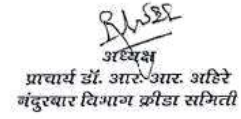 अध्यक्ष
प्राचार्य डॉ. आर. आर. अहिरे
नंदुरबार विभाग क्रीडा समिती